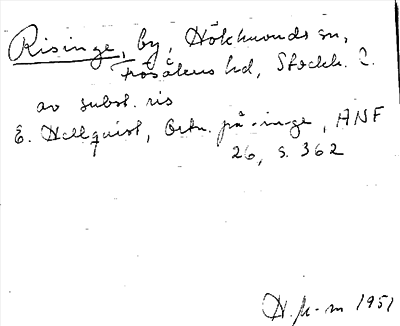 Risinge, by, Hökhuvuds sn,
Frösåkers hd, Stockh. l.
av subst. ris
E. Hellquist, Ortn. på -inge, ANF
26, s. 362
H. 1951